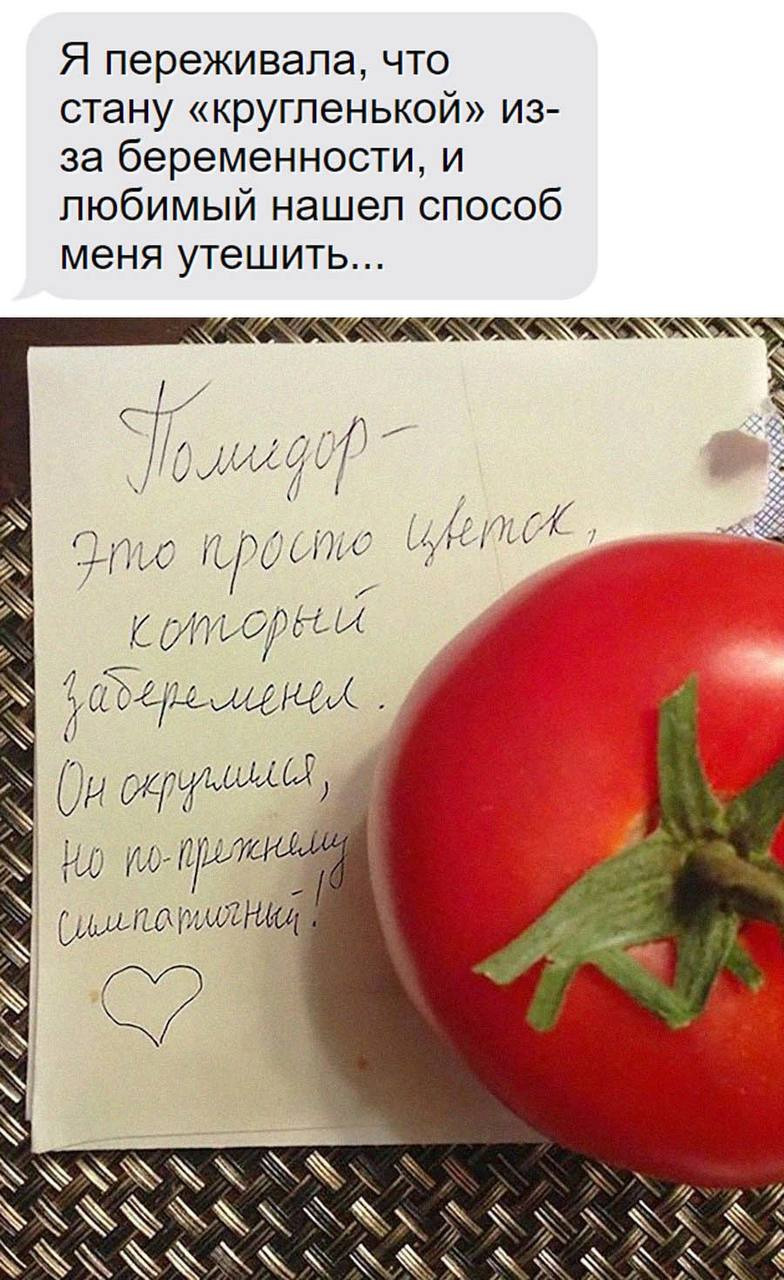 Я переживала, что
стану «кругленькой» из-
за беременности, и
любимый нашел способ
меня утешить...
Помидор-
Это просто цветок,
который
забеременел.
Он округлился,
но по-прежнему
симпатичный!